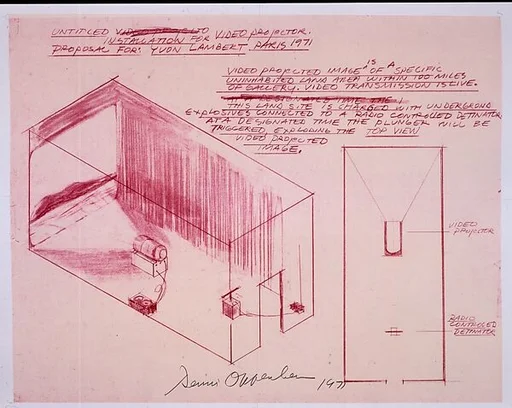 UNTITLED
INSTALLATION FOR VIDEO PROJECTOR.
PROPOSAL FOR: YVON LAMBERT PARIS 1971
IS A
VIDEO PROJECTED IMAGE OF SPECIFIC
UNINHABITED LAND AREA WITHIN 100 MILES
OF GALLERY. VIDEO TRANSMISSION IS LIVE.
THIS LAND SITE IS CHARGED WITH UNDERGROUND
EXPLOSIVES CONNECTED TO A RADIO CONTROLLED DETINATOR
AT A DESIGNATED TIME THE PLUNGER WILL BE
TRIGGERED, EXPLODING THE
VIDEO PROJECTED
IMAGE.
TOP VIEW
VIDEO
PROJECTOR
RADIO
CONTROLLED
DETINATOR
Dennis Oppenheim 1971